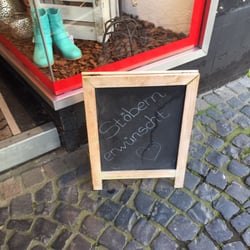 Stöbern
erwünscht